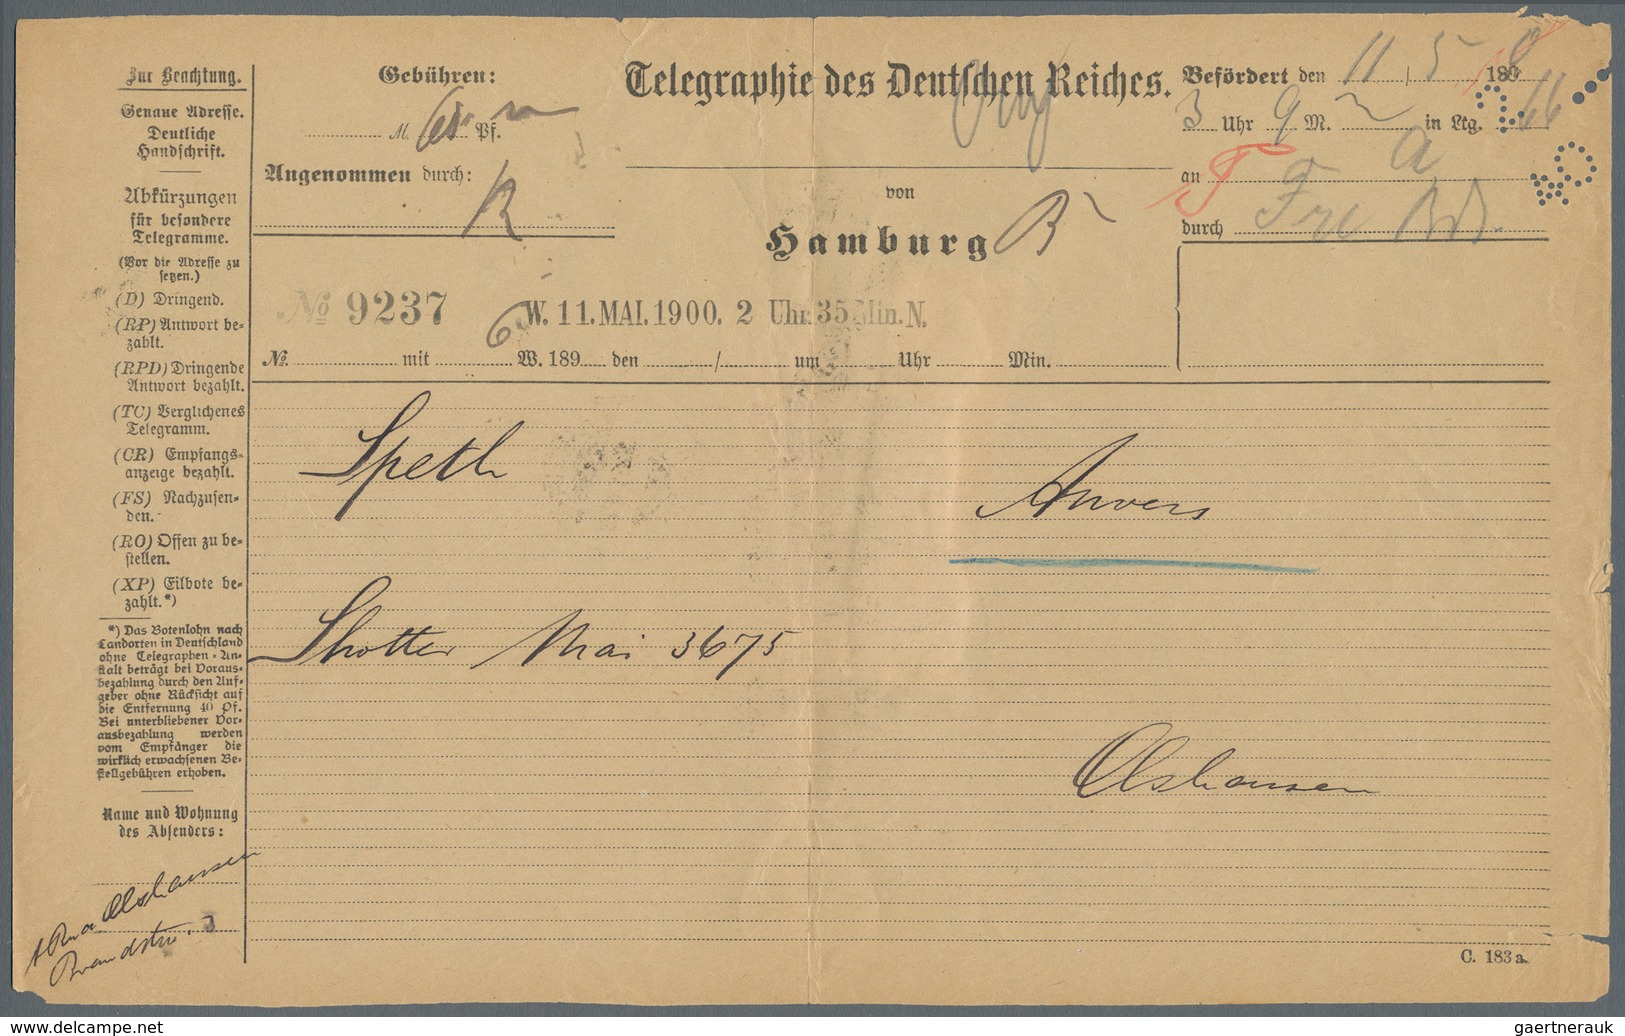 Zur Beachtung.
Genaue Adresse.
Deutliche
Handschrift.
Abkürzungen
für besondere
Telegramme.
(Vor die Adresse zu
setzen.)
(D) Dringend.
(RP) Antwort be-
zahlt.
(RPD) Dringende
Antwort bezahlt.
(TC) Verglichenes
Telegramm.
(CR) Empfangs-
anzeige bezahlt.
(FS) Nachzusen-
den.
(RO) Offen zu be-
stellen.
(XP) Eilbote be-
zahlt.*)
*) Das Botenlohn nach
Landorten in Deutschland
ohne Telegraphen-An-
stalt beträgt bei Voraus-
bezahlung durch den Auf-
geber ohne Rücksicht auf
die Entfernung 40 Pf.
Bei unterbliebener Vor-
ausbezahlung werden
vom Empfänger die
wirklich erwachsenen Be-
stellgebühren erhoben.
Name und Wohnung
des Absenders:
Olshausen
Brandstw. 3
Gebühren:
M. Pf.
Angenommen durch:
R
Telegraphie des Deutschen Reiches.
von
Hamburg B
Befördert den 11/5 189
3 Uhr 9 M. in Ltg. 66
an a
durch
No 9237 6 W. 11. MAI. 1900. 2 Uhr 35 Min. N.
No. mit W. 189 den / um Uhr Min.
Speth Anvers
Shotter Mai 3675
Olshausen
C. 183 a.
gaertnerauk.com